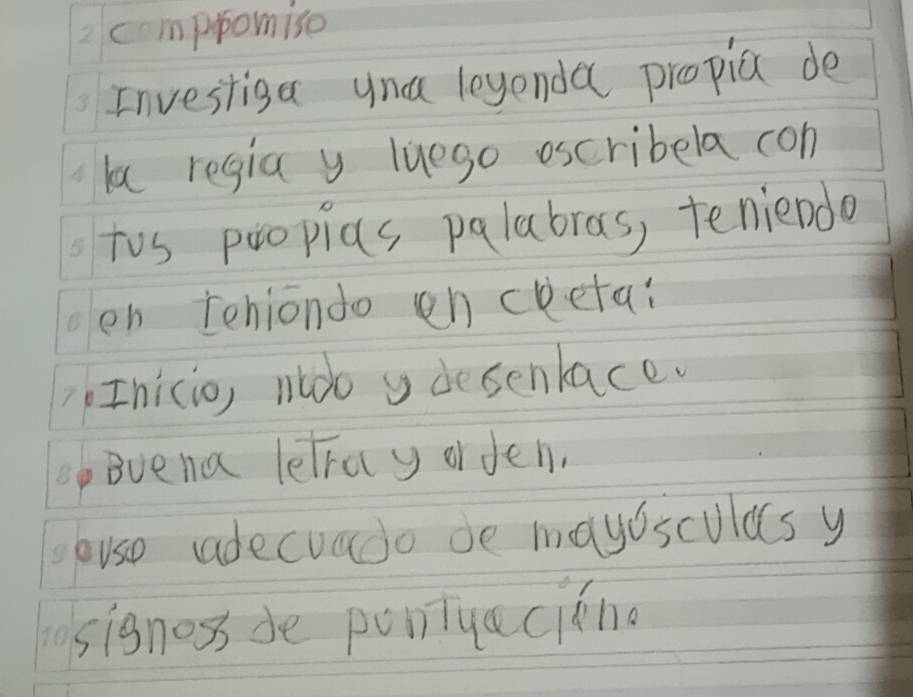 compromiso
Investiga una leyenda propia de
la regia y luego escribela con
tus propias palabras, teniendo
en teniendo en cueta:
Inicio, nudo y desenlace.
Buena letra y orden.
uso adecuado de mayúsculas y
signos de puntuación.